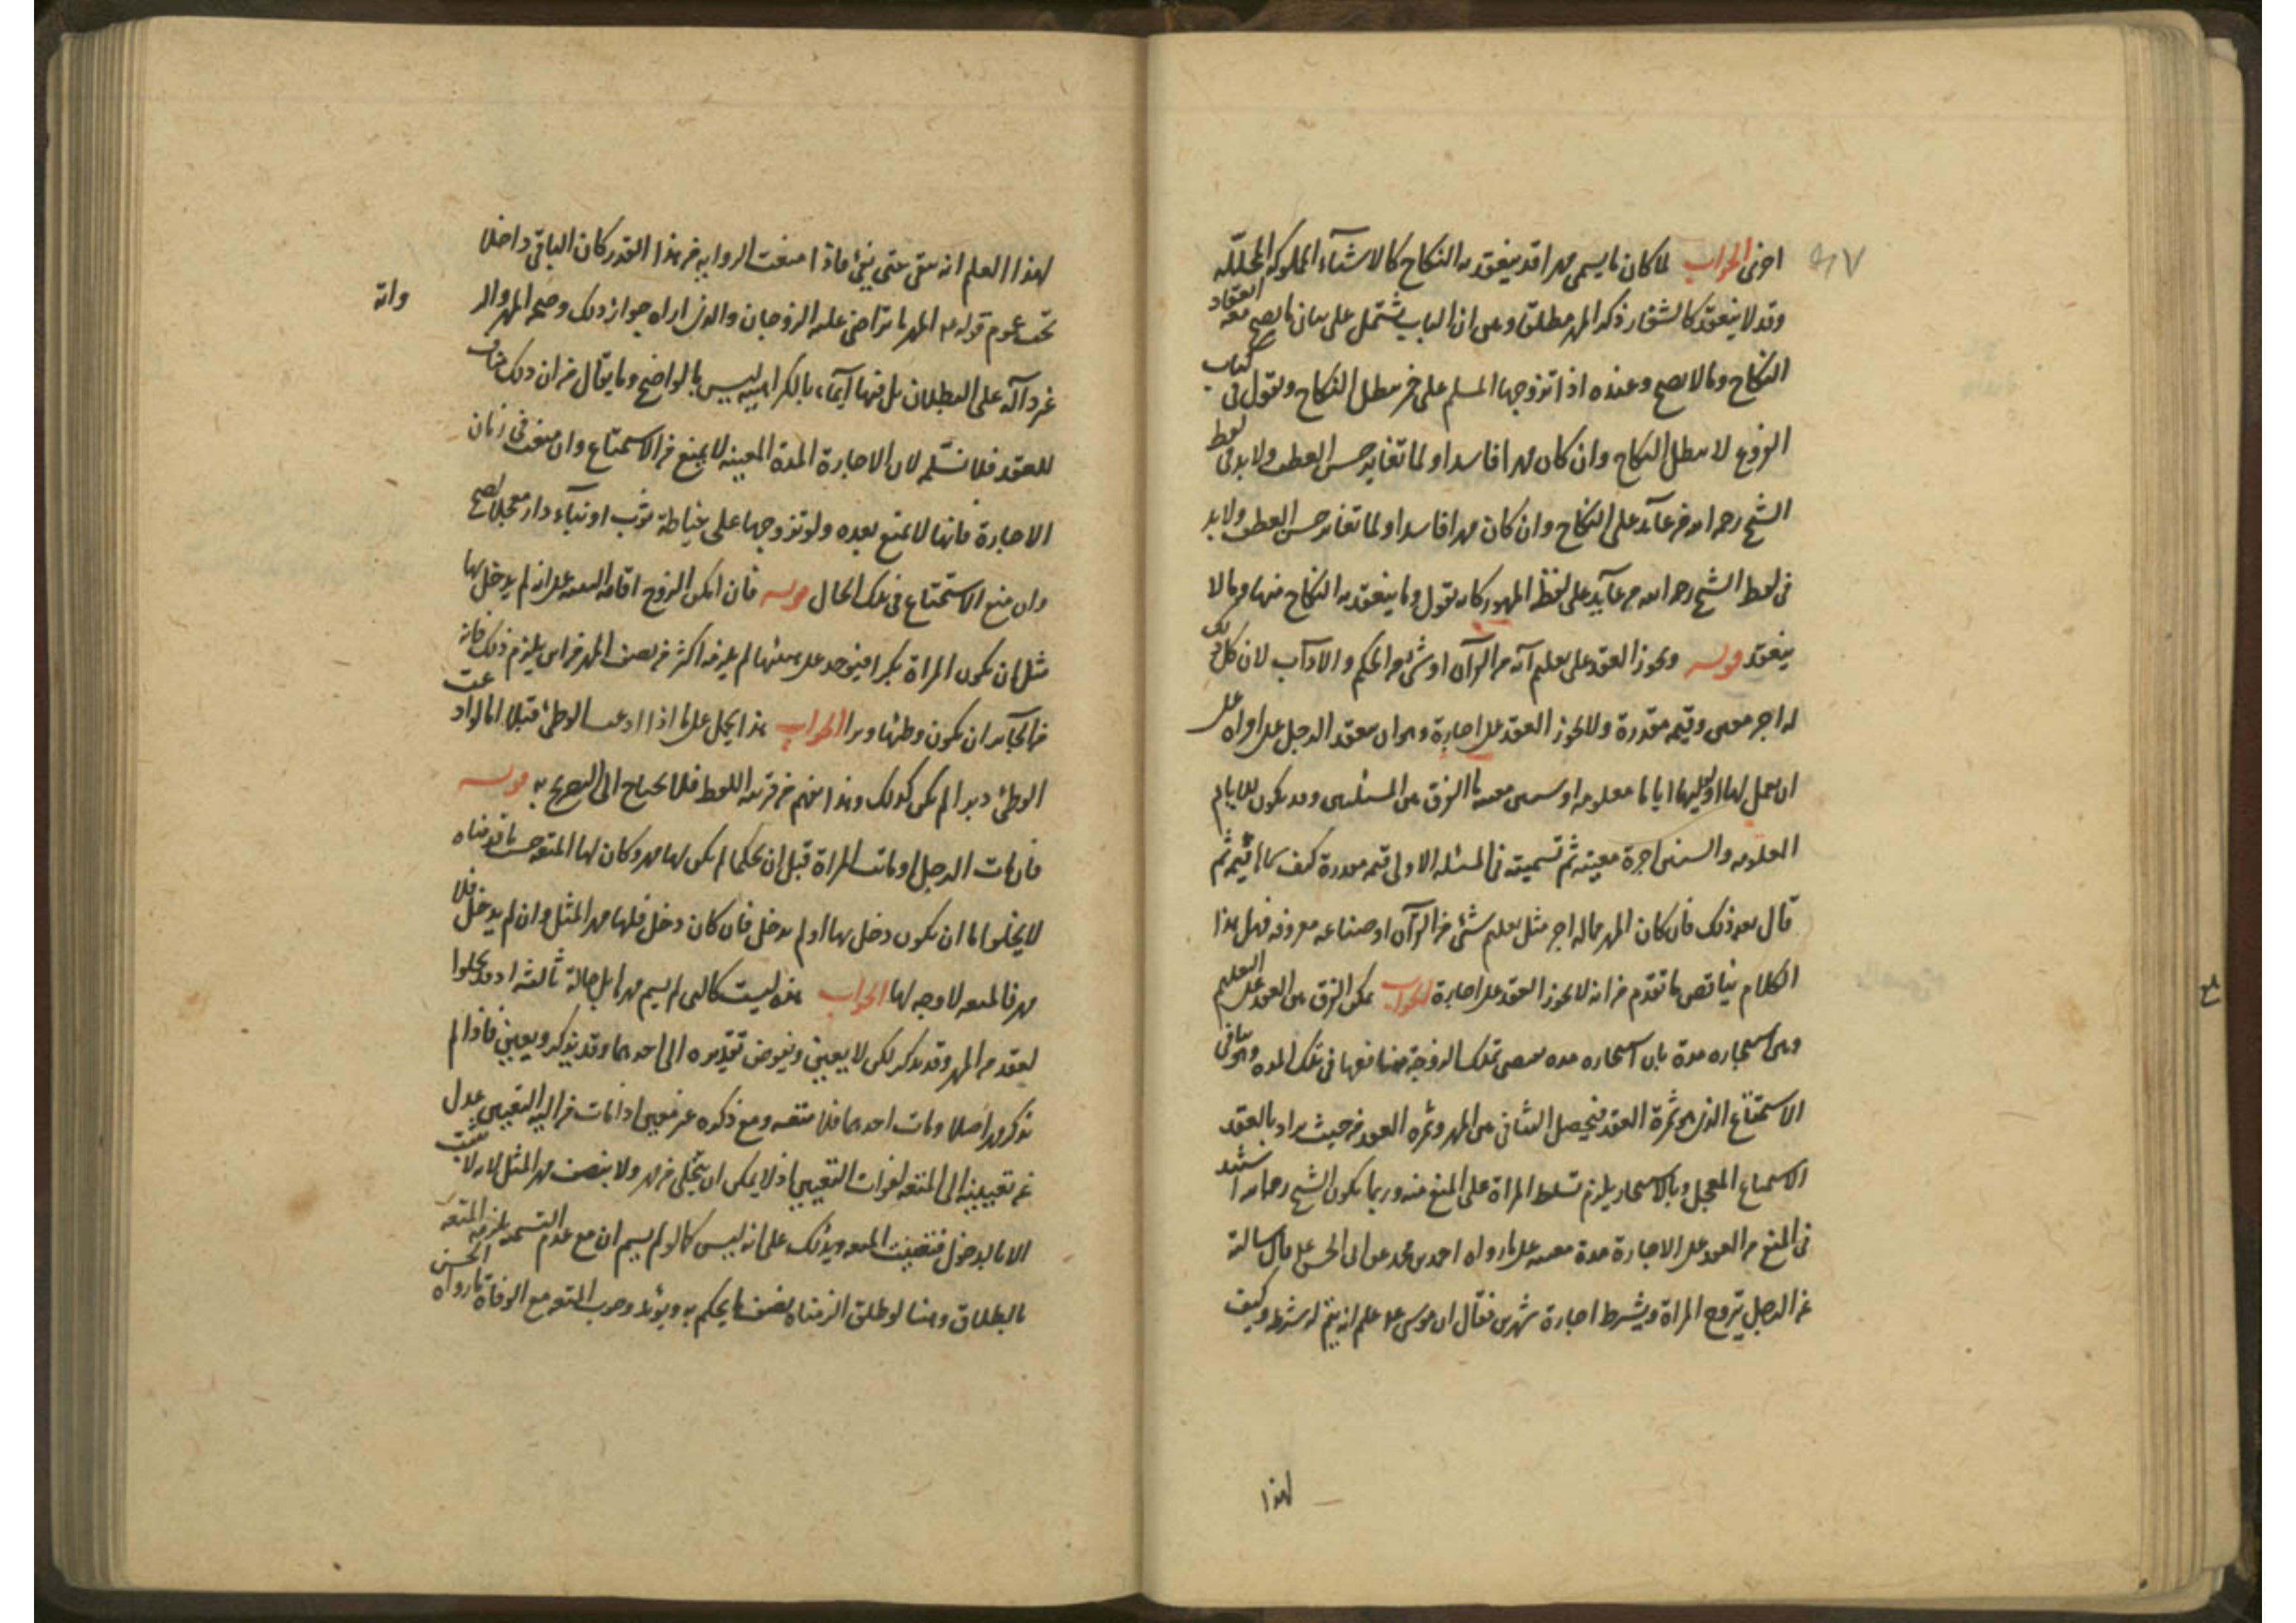 ٦٧
اخرى الجواب لما كان ما يسمى مهرا قد ينعقد به النكاح كالاشياء المملوكة المحللة
وقد لا ينعقد كالشغار ذكر المهر مطلقا وعلى ان الباب يشتمل على بيان ما يصح معه انعقاد
النكاح وما لا يصح وعنده اذا تزوجها المسلم على خمر بطل النكاح ويقول في كتاب
الفروع لا يبطل النكاح وان كان مهرا فاسدا ولما تغاير حسن العطف ولا بد في لفظ
الشيخ رحمه الله من عائد على النكاح وان كان مهرا فاسدا ولما تغاير حسن العطف ولا بد
في لفظ الشيخ رحمه الله من عايد على لفظ المهور كانه يقول وما ينعقد به النكاح منها وما لا
ينعقد قوله ويجوز العقد على تعليم آية من القرآن او شيء من الحكم والآداب لان كل ذلك
له اجر معين وقيمة مقدرة ولا يجوز العقد على اجارة وهو ان يعقد الرجل على امراة على
ان يعمل لها او لوليها اياما معلومة او سنين معينة ما الفرق بين المسئلتين وقد يكون للايام
المعلومة والسنين اجرة معينة ثم تسميته في المسئلة الاولى قيمة مقدرة كيف سماها قيمة ثم
قال بعد ذلك فان كان المهر مما له اجر مثل تعليم شيء من القرآن او صناعة معروفة فهل هذا
الكلام يناقض ما تقدم من انه لا يجوز العقد على اجارة الجواب يمكن الفرق بين العقد على التعليم
وبين استيجاره مدة بان استيجاره مدة يقتضي تملك الزوجة منافعها في تلك المدة وهو ينافي
الاستمتاع الذي هو ثمرة العقد فيحصل التنافي بين المهر وثمرة العقد من حيث يراد بالعقد
الاستمتاع المعجل وبالاستيجار يلزم تسلط المراة على المنع منه وربما يكون الشيخ رحمه الله استند
في المنع من العقد على الاجارة مدة معينة على ما رواه احمد بن محمد عن ابي الحسن ع قال سالته
عن الرجل يتزوج المراة ويشترط اجارة شهرين فقال ان موسى ع علم انه يتم له شرطه وكيف
لهذا
لهذا العلم انه يبقى حتى يفي فاذا منعت الرواية من هذا القدر كان الباقي داخلا
تحت عموم قوله ع المهر ما تراضى عليه الزوجان والذي اراه جواز ذلك وصحة المهر والرواية
غير دالة على البطلان بل فيها ايماء بالكراهية ليس بالواضح وما يقال من ان ذلك مناف
للعقد فلا نسلمه لان الاجارة المدة المعينة لا يمنع من الاستمتاع وان منعت في زمان
الاجارة فانها لا تمنع بعده ولو تزوجها على خياطة ثوب او بناء دار معجلا صح
وان منع الاستمتاع في تلك الحال قوله فان امكن الزوج اقامة البينة على انه لم يدخل بها
مثل ان تكون المراة بكرا فيوجد على هيئتها لم يلزمه اكثر من نصف المهر من اين يلزم ذلك فانه
من الجائز ان يكون وطئها دبرا الجواب هذا يحمل على ما اذا ادعت الوطئ قبلا اما لو ادعت
الوطئ دبرا لم يكن كذلك وهذا يفهم من قرينة اللفظ فلا يحتاج الى التصريح به قوله
فان مات الرجل او ماتت المراة قبل ان يحكما لم يكن لها مهر وكان لها المتعة حسب ما قدمناه
لا يخلوا اما ان يكون دخل بها او لم يدخل فان كان دخل فلها مهر المثل وان لم يدخل فلا
مهر فالمتعة لا وجه لها الجواب هذه ليست كالتي لم يسم مهرا بل حالة ثالثة اذ قد يخلوا
العقد من المهر وقد يذكر لكن لا يعين ويفوض تقديره الى احدهما وقد يذكر ويعين فاذا لم
يذكر مهر اصلا ومات احدهما فلا متعة ومع ذكره غير معين اذا مات من اليه التعيين عدل
عن تعيينه الى المتعة لفوات التعيين اذ لا يمكن ان يخلى من مهر ولا ينصف مهر المثل لانه لا يثبت
الا بالدخول فتعينت المتعة ويدلك على انه ليس كما لو لم يسم ان مع عدم التسمية يلزمه المتعة
بالطلاق وهنا لو طلق الزمناه بنصف ما يحكم به ويؤيد وجوب المتعة مع الوفاة ما رواه الحسن